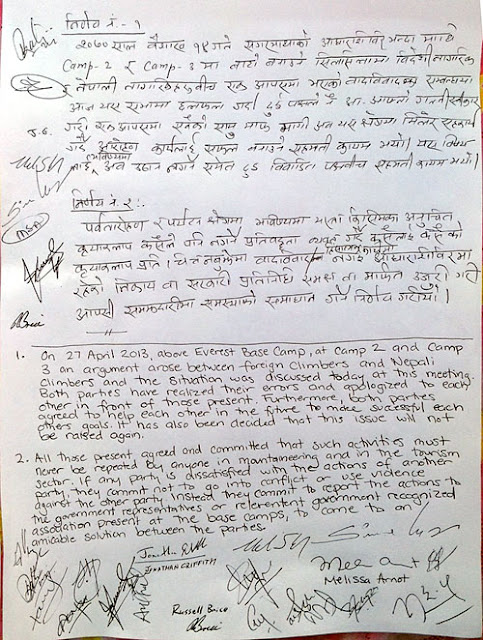 निर्णय नं - १
२०७० साल वैशाख १४ गते सगरमाथाको आधारशिविर भन्दा माथि
Camp-2 र Camp-3 मा बाटो बनाउने सिलसिलामा विदेशी नागरिक
र नेपाली नागरिकहरू बीच एक आपसमा भएको वादविवादका सम्बन्धमा
आज यस सभामा छलफल गर्दा दुई पक्षले नै आ-आफ्नो गल्ती स्वीकार
गर्दै एक आपसमा सबैको सामु माफ मागी अब यस क्षेत्रमा मिलेर सहकार्य
गर्दै आरोहण कार्यलाई सफल बनाउने सहमती कायम भयो। यस विषय
लाई भविष्यमा अब उठान नगर्ने समेत दुई पक्षबीच सहमती कायम भयो।
निर्णय नं २ :-
पर्वतारोहण र पर्यटन क्षेत्रमा भविष्यमा यस्ता किसिमका अनुचित
क्रियाकलाप कसैले पनि नगर्ने प्रतिबद्धता व्यक्त गर्दै कसैलाई कसैको
क्रियाकलाप प्रति चित्त नबुझेमा वादविवाद नगरी आधारशिविरमा
रहेका निकाय वा सरकारी प्रतिनिधि समक्ष वा मार्फत उजुरी गरी
आपसी समझदारीमा समस्याको समाधान गर्ने निर्णय गरियो।
1. On 27 April 2013, above Everest Base Camp, at Camp 2 and Camp
3 an argument arose between foreign Climbers and Nepali
Climbers and the situation was discussed today at this meeting.
Both parties have realized their errors and apologized to each
other in front of those present. Furthermore, both parties
agreed to help each other in the future to make successful each
others goals. It has also been decided that this issue will not
be raised again.
2. All those present agreed and committed that such activities must
never be repeated by anyone in mountaineering and in the tourism
sector. If any party is dissatisfied with the actions of another
party, they commit not to go into conflict or use violence
against the other party. Instead they commit to report the actions to
the government representatives or relerentent government recognized
association present at the base camps, to come to an
amicable solution between the parties.
JONATHAN GRIFFITH
Melissa Arnot
Russell Brice